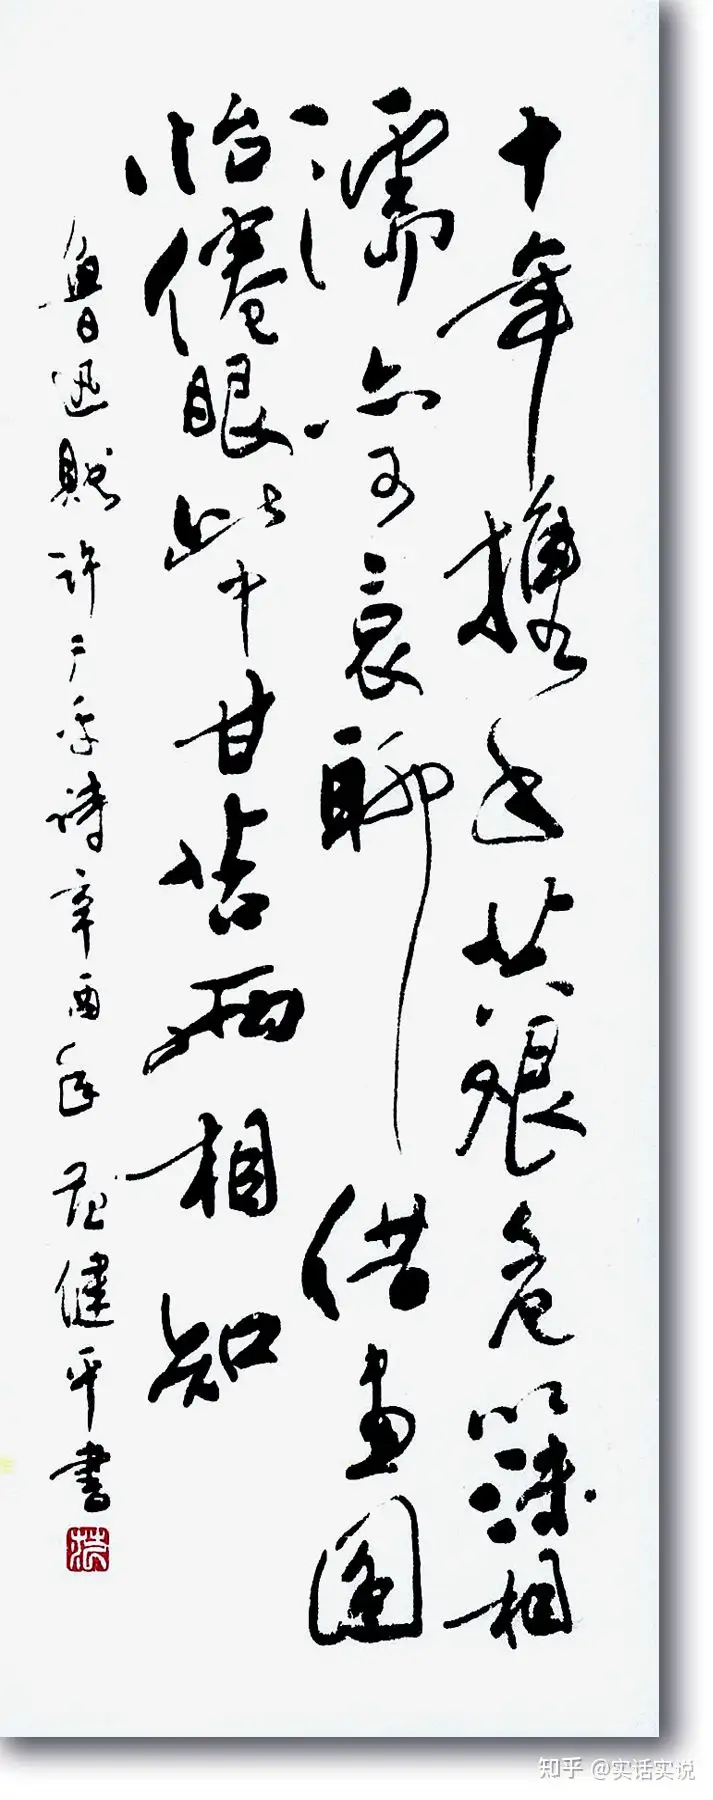 十年携手共艰危以沫相
濡亦可哀聊借画图
怡倦眼此中甘苦两相知
鲁迅赠许广平诗辛酉年 健平書
知乎 @实话实说